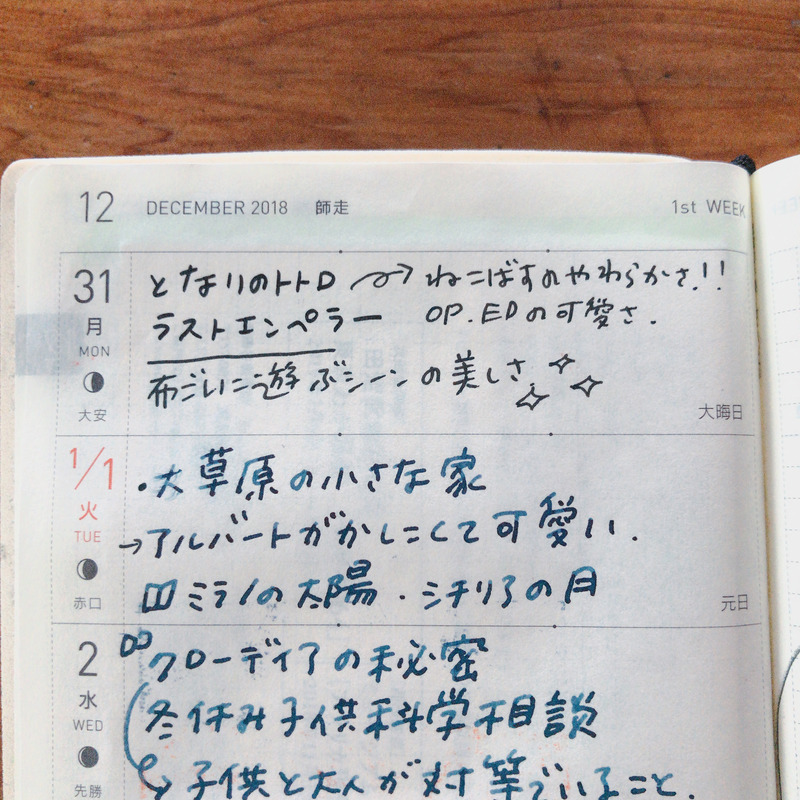 12 DECEMBER 2018 師走 1st WEEK
31 となりのトトロ → ねこばすのやわらかさ!!
月 ラストエンペラー OP.EDの可愛さ.
MON
布ごしに遊ぶシーンの美しさ
大安 大晦日
1/1 ・大草原の小さな家
火
TUE →アルバートがかしこくて可愛い.
ミラノの太陽・シチリアの月
赤口 元日
2 クローディアの秘密
水 冬休み子供科学相談
WED
先勝 子供と大人が対等でいること.